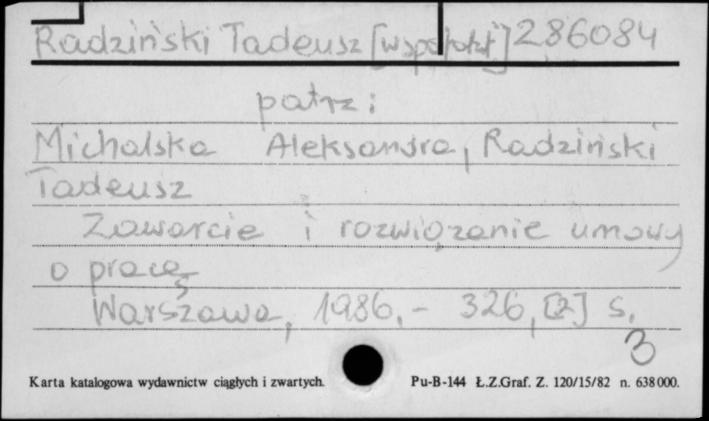 Radziński Tadeusz [współaut.] 286084
patrz:
Michalska Aleksandra, Radziński
Tadeusz
Zawarcie i rozwiązanie umowy
o pracę
Warszawa, 1986, - 326, [2] s.
3
Karta katalogowa wydawnictw ciągłych i zwartych. Pu-B-144 Ł.Z.Graf. Z. 120/15/82 n. 638000.